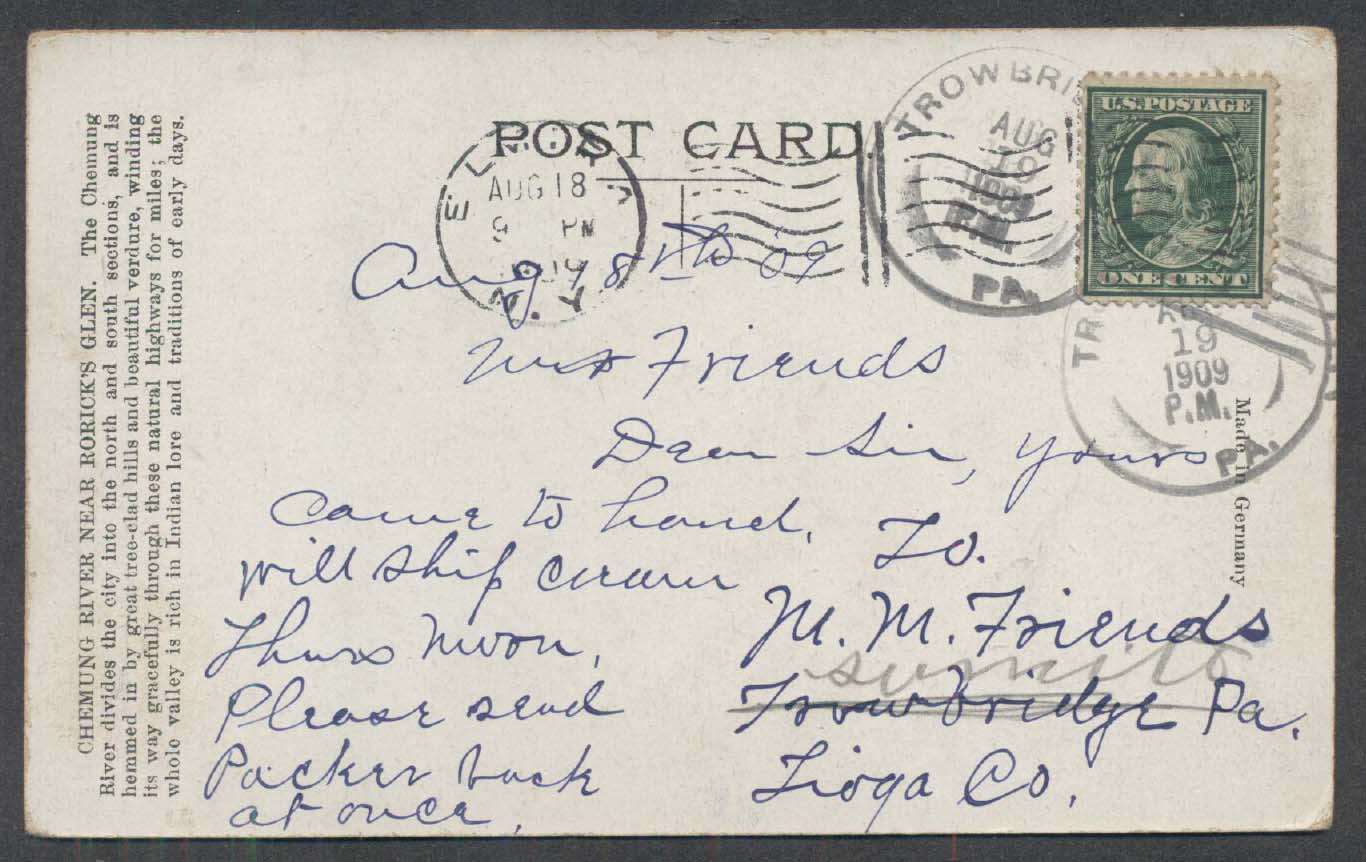 CHEMUNG RIVER NEAR RORICK'S GLEN. The Chemung
River divides the city into the north and south sections, and is
hemmed in by great tree-clad hills and beautiful verdure, winding
its way gracefully through these natural highways for miles; the
whole valley is rich in Indian lore and traditions of early days.
POST CARD.
ELMIRA
AUG 18
9 PM
N.Y.
TROWBRI
AUG
19
1909
P.M.
PA.
U.S. POSTAGE
ONE CENT
TR
AUG
19
1909
P.M.
PA.
Made in Germany
Aug 18th 09
Friends
Dear Sir, yours
came to hand.
will ship cream
Thurs noon,
Please send
Packer back
at once,
To.
M. M. Friends
Trowbridge Pa.
Tioga Co.